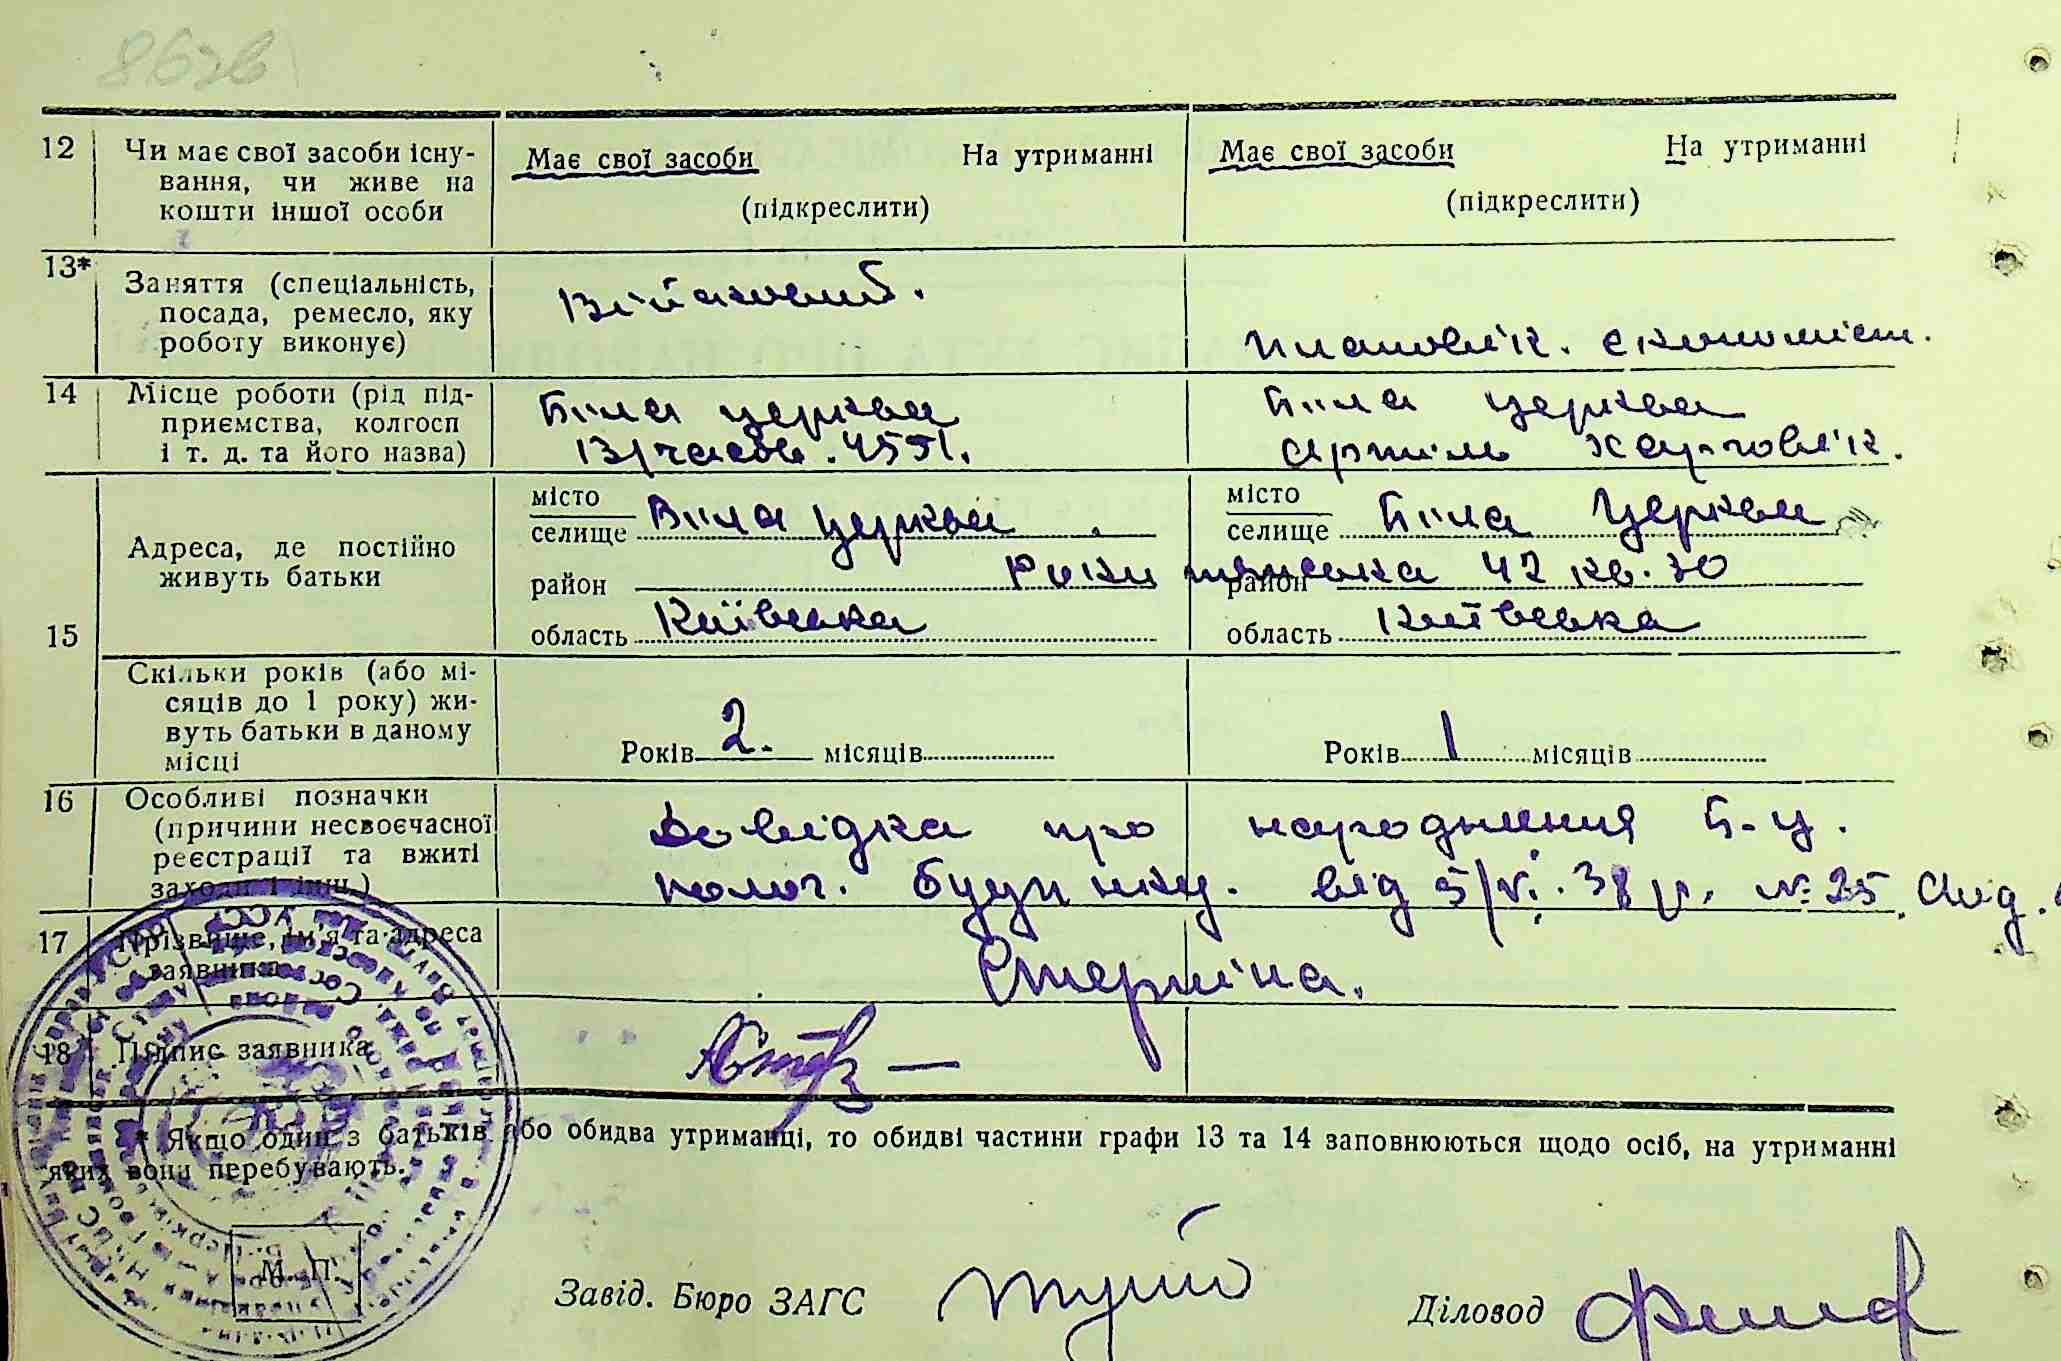 862в
12 Чи має свої засоби існу- Має свої засоби На утриманні Має свої засоби На утриманні
вання, чи живе на
кошти іншої особи (підкреслити) (підкреслити)
13* Заняття (спеціальність, Військовий.
посада, ремесло, яку
роботу виконує) плановік. економіст.
14 Місце роботи (рід під- Біла церква Біла церква
приємства, колгосп
і т. д. та його назва) В/часть. Артіль Харчовік.
місто Біла церква місто Біла Церква
селище селище
Адреса, де постійно
живуть батьки район район 42 кв. 30
15 область Київська область Київська
Скільки років (або мі-
сяців до 1 року) жи-
вуть батьки в даному
місці Років 2. місяців Років 1 місяців
16 Особливі позначки Довідка про народження Б-Ц.
(причини несвоєчасної
реєстрації та вжиті полог. будинку. від 5/VI. 38 р. № 25.
заходи і інш.)
17 Прізвище, ім'я та адреса
заявника Стеріна.
18 Підпис заявника
* Якщо один з батьків або обидва утриманці, то обидві частини графи 13 та 14 заповнюються щодо осіб, на утриманні
яких вони перебувають.
М. П.
Завід. Бюро ЗАГС Діловод